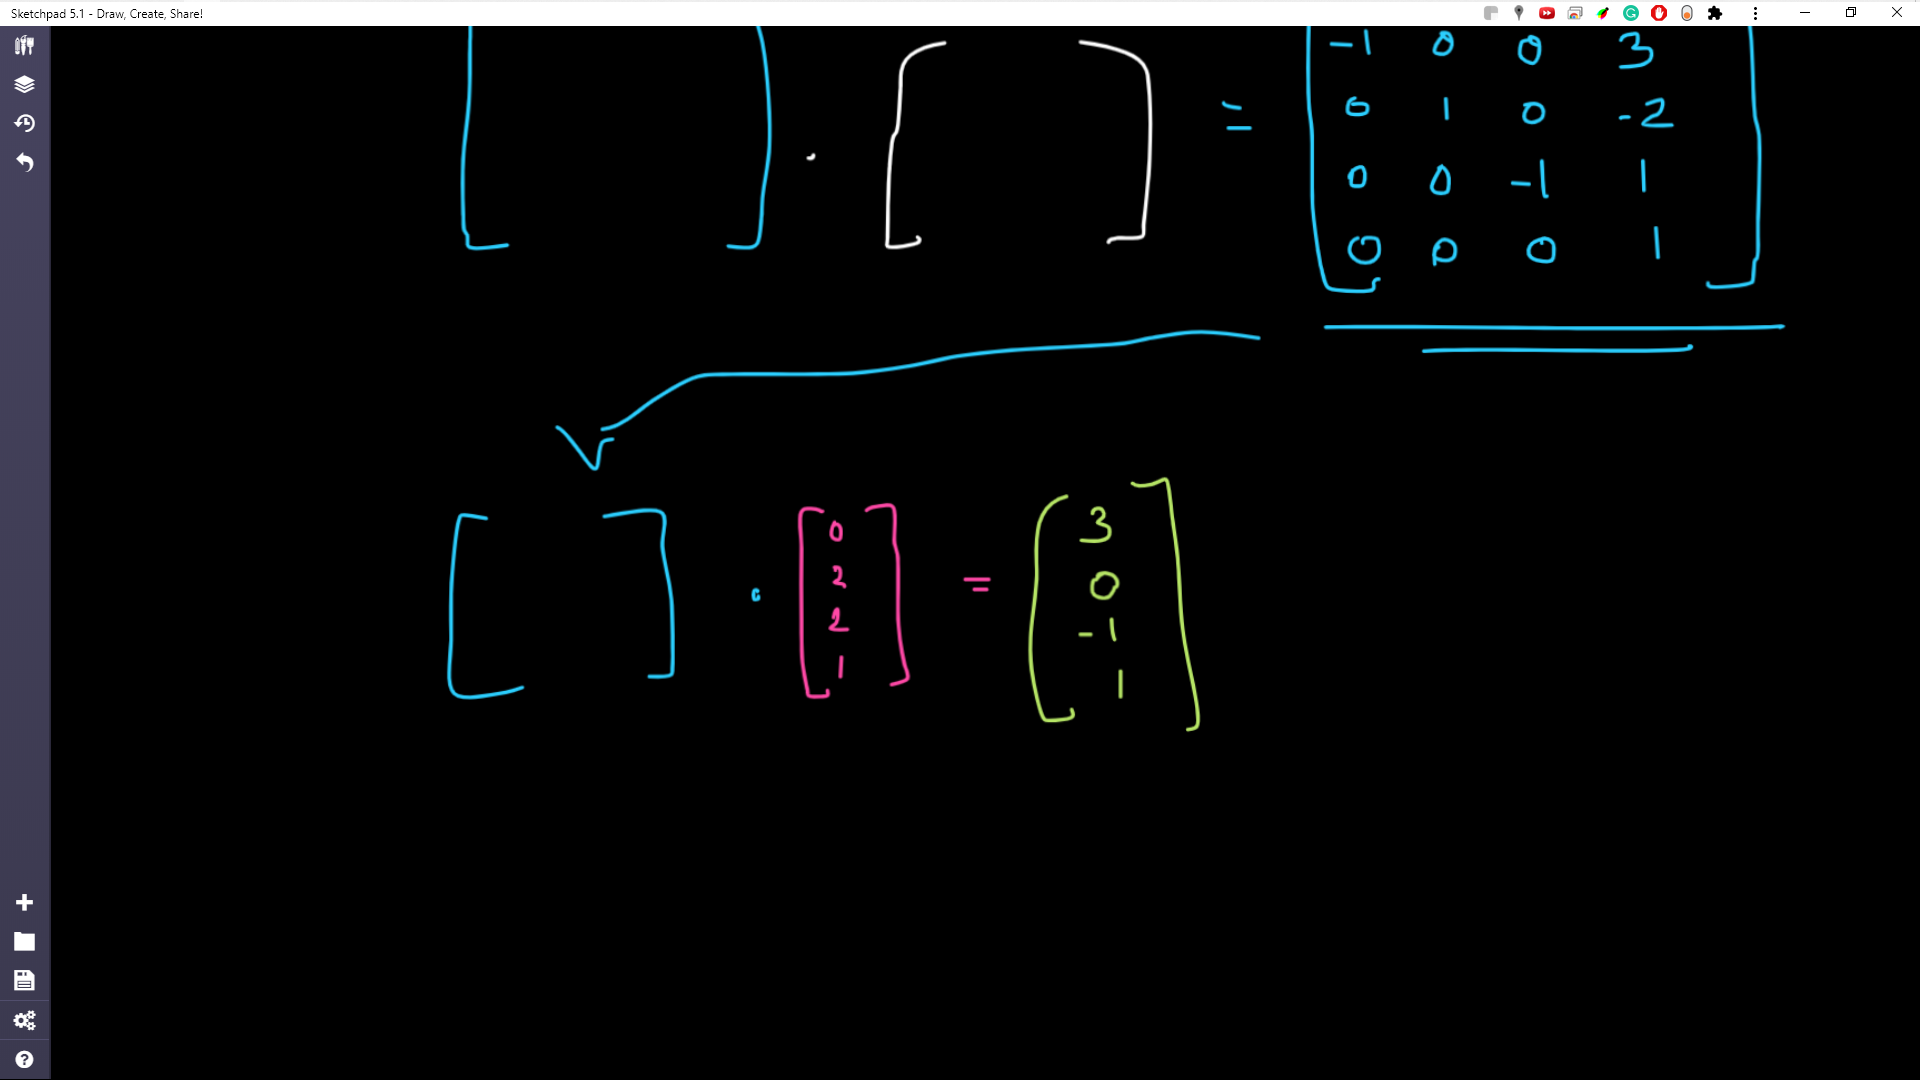 Sketchpad 5.1 - Draw, Create, Share!
-1 0 0 3
. = 0 1 0 -2
0 0 -1 1
0 0 0 1
0 3
2 0
. =
2 -1
1 1